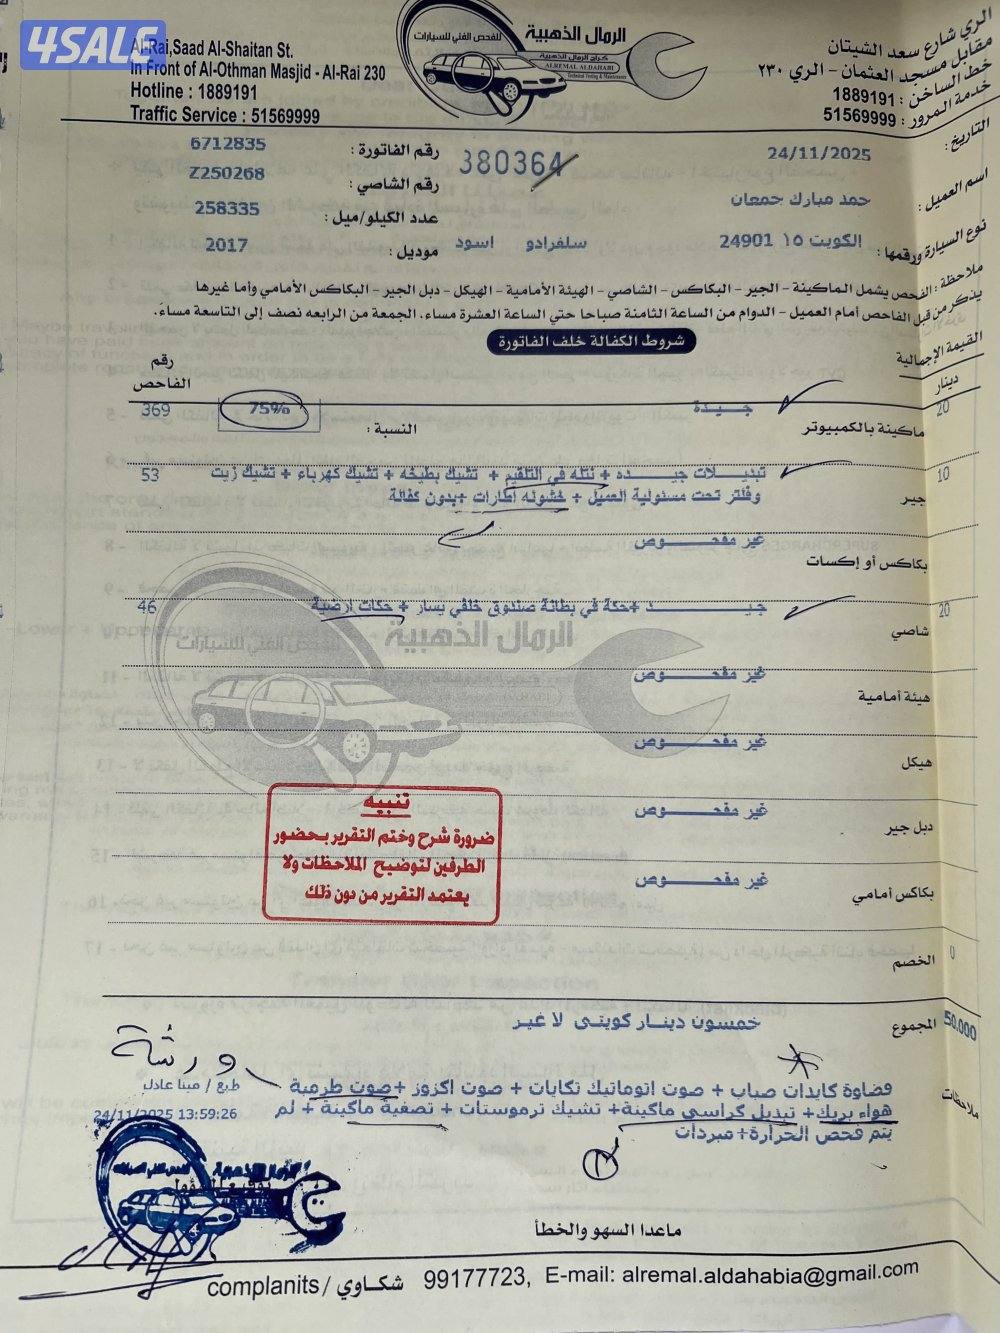 4SALE
Al-Rai,Saad Al-Shaitan St.
In Front of Al-Othman Masjid - Al-Rai 230
Hotline : 1889191
Traffic Service : 51569999
الرمال الذهبية
للفحص الفني للسيارات
كراج الرمال الذهبية
ALREMAL ALDAHABI
Technical Testing & Maintenance
الري شارع سعد الشيتان
مقابل مسجد العثمان - الري ٢٣٠
خط الساخن : 1889191
خدمة المرور : 51569999
التاريخ : 24/11/2025
380364
رقم الفاتورة : 6712835
اسم العميل : حمد مبارك جمعان
رقم الشاصي : Z250268
عدد الكيلو/ميل : 258335
نوع السيارة ورقمها : الكويت ١٥ 24901 سلفرادو اسود
موديل : 2017
ملاحظة : الفحص يشمل الماكينة - الجير - البكاكس - الشاصي - الهيئة الأمامية - الهيكل - دبل الجير - البكاكس الأمامي وأما غيرها
يذكر من قبل الفاحص أمام العميل - الدوام من الساعة الثامنة صباحا حتي الساعة العشرة مساء. الجمعة من الرابعه نصف إلى التاسعة مساءً.
شروط الكفالة خلف الفاتورة
القيمة الإجمالية
دينار
رقم الفاحص
20 ماكينة بالكمبيوتر جيدة النسبة : 75% 369
10 جير تبديلات جيده + نتله في التلقيم + تشيك بطيخه + تشيك كهرباء + تشيك زيت 53
وفلتر تحت مسئولية العميل + خشوله اطارات +بدون كفالة
بكاكس أو إكسات غير مفحوص
20 شاصي جيد +حكة في بطانة صندوق خلفي يسار + حكات ارضية 46
هيئة أمامية غير مفحوص
هيكل غير مفحوص
دبل جير غير مفحوص
بكاكس أمامي غير مفحوص
تنبيه
ضرورة شرح وختم التقرير بحضور
الطرفين لتوضيح الملاحظات ولا
يعتمد التقرير من دون ذلك
0 الخصم
50.000 المجموع خمسون دينار كويتى لا غير
ورشة
طبع / مينا عادل
24/11/2025 13:59:26
ملاحظات
فضاوة كايدات صباب + صوت اتوماتيك تكايات + صوت اكزوز +صوت طرمبة
هواء بريك+ تبديل كراسي ماكينة+ تشيك ترموستات + تصفية ماكينة + لم
يتم فحص الحرارة+ مبردات
ماعدا السهو والخطأ
complanits / شكاوي 99177723, E-mail: alremal.aldahabia@gmail.com